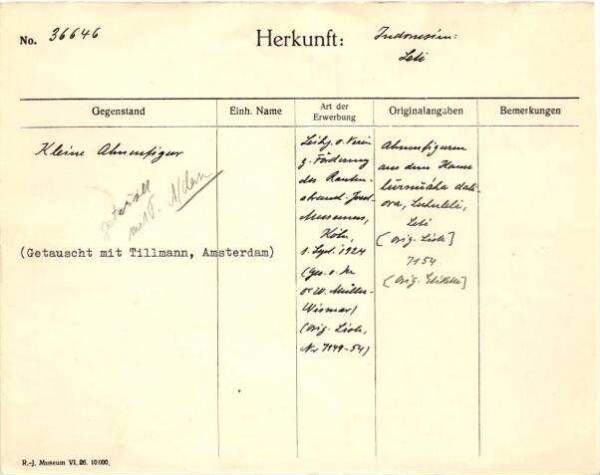 No. 36646
Herkunft:
Indonesien:
Leti
Gegenstand
Einh. Name
Art der
Erwerbung
Originalangaben
Bemerkungen
Kleine Ahnenfigur
(Getauscht mit Tillmann, Amsterdam)
Leihg. v. Verein
z. Förderung
des Rauten-
strauch-Joest-
Museums,
Köln,
1. Sept. 1924
(Ges. v. Dr
W. Müller-
Wismar)
(orig. Liste,
Nr 7149-54)
Ahnenfiguren
aus dem Hause
Luhuleli,
Leti
(orig. Liste)
7154
(orig. Etikette)
R.-J. Museum VI. 26. 10000.